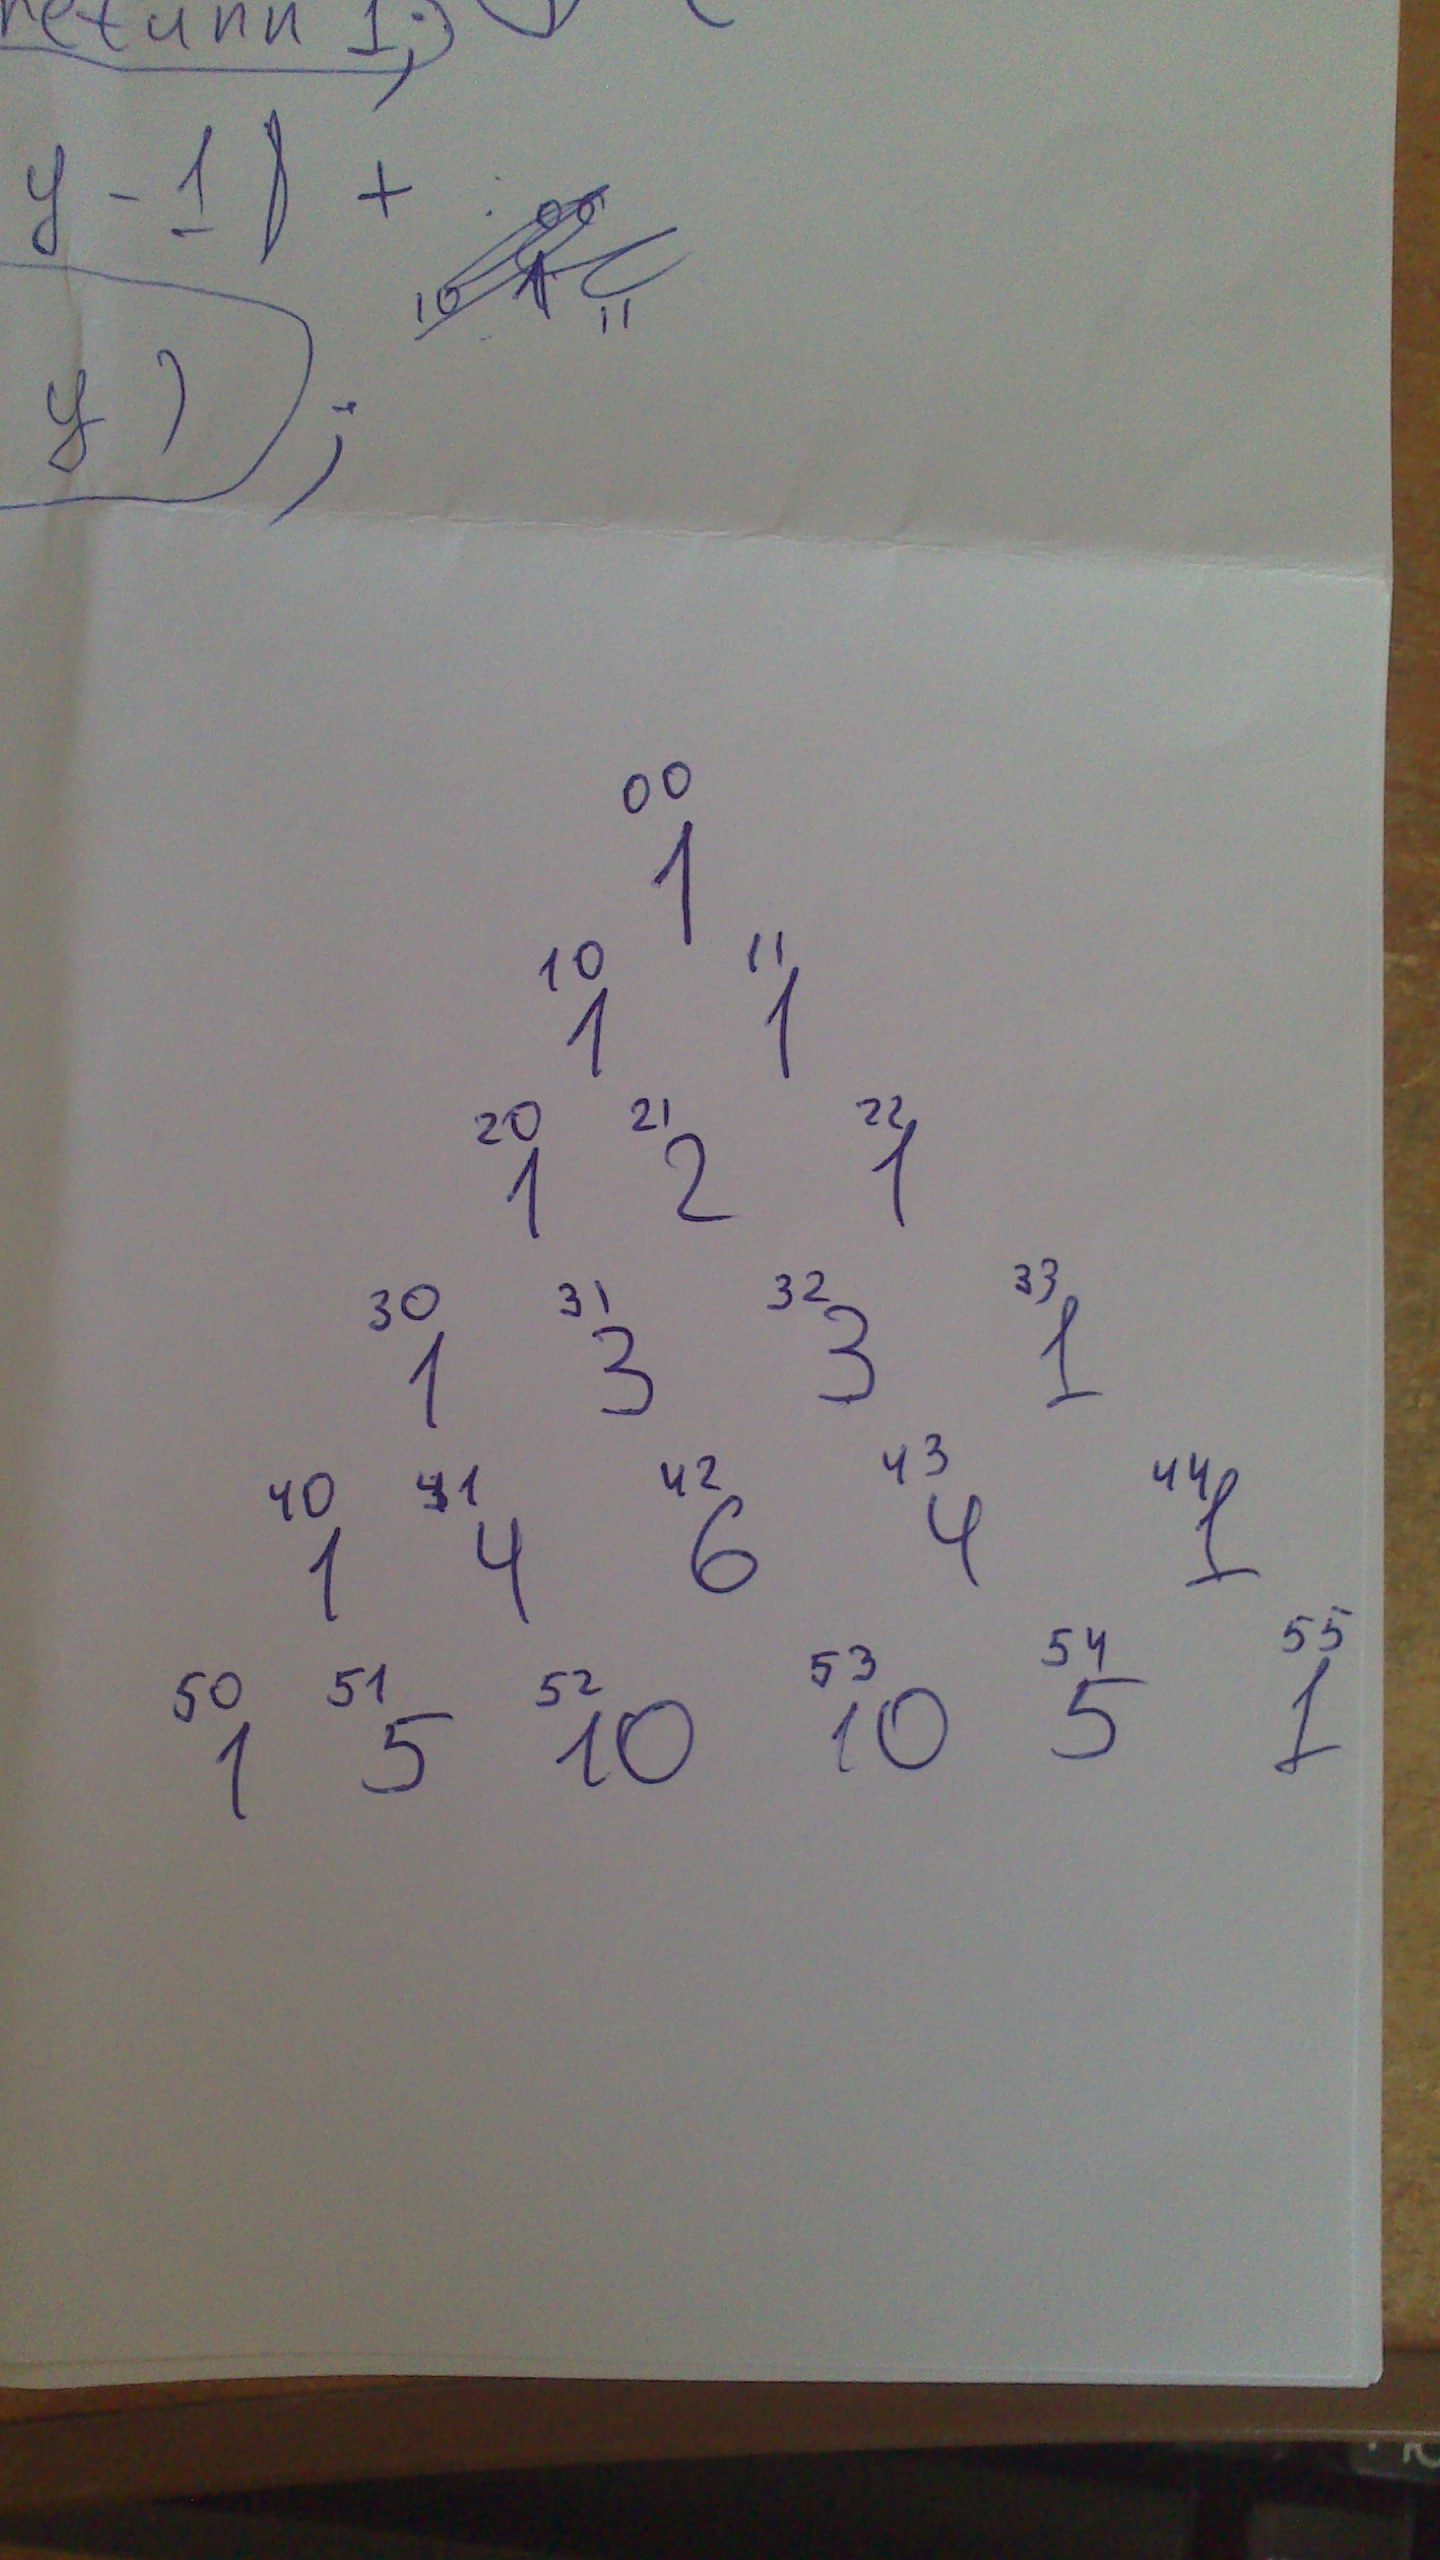 return 1;
y - 1) +
00
10 1 11
y) ;
00
1
10 11
1 1
20 21 22
1 2 1
30 31 32 33
1 3 3 1
40 41 42 43 44
1 4 6 4 1
50 51 52 53 54 55
1 5 10 10 5 1